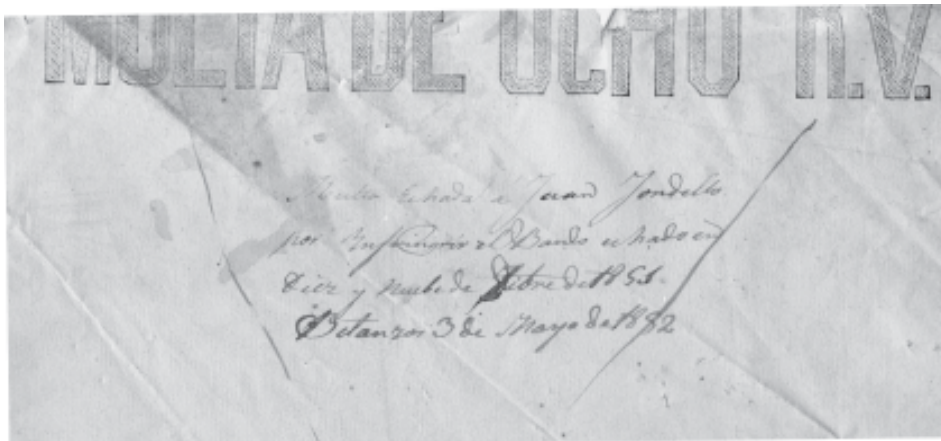 MULTA DE OCHO R.V.
Multa Echada a Juan Jondello
por Infrinorir el Bando echado en
Diez y nuebe de Xbre de 1851.
Betanzos 3 de Mayo de 1852